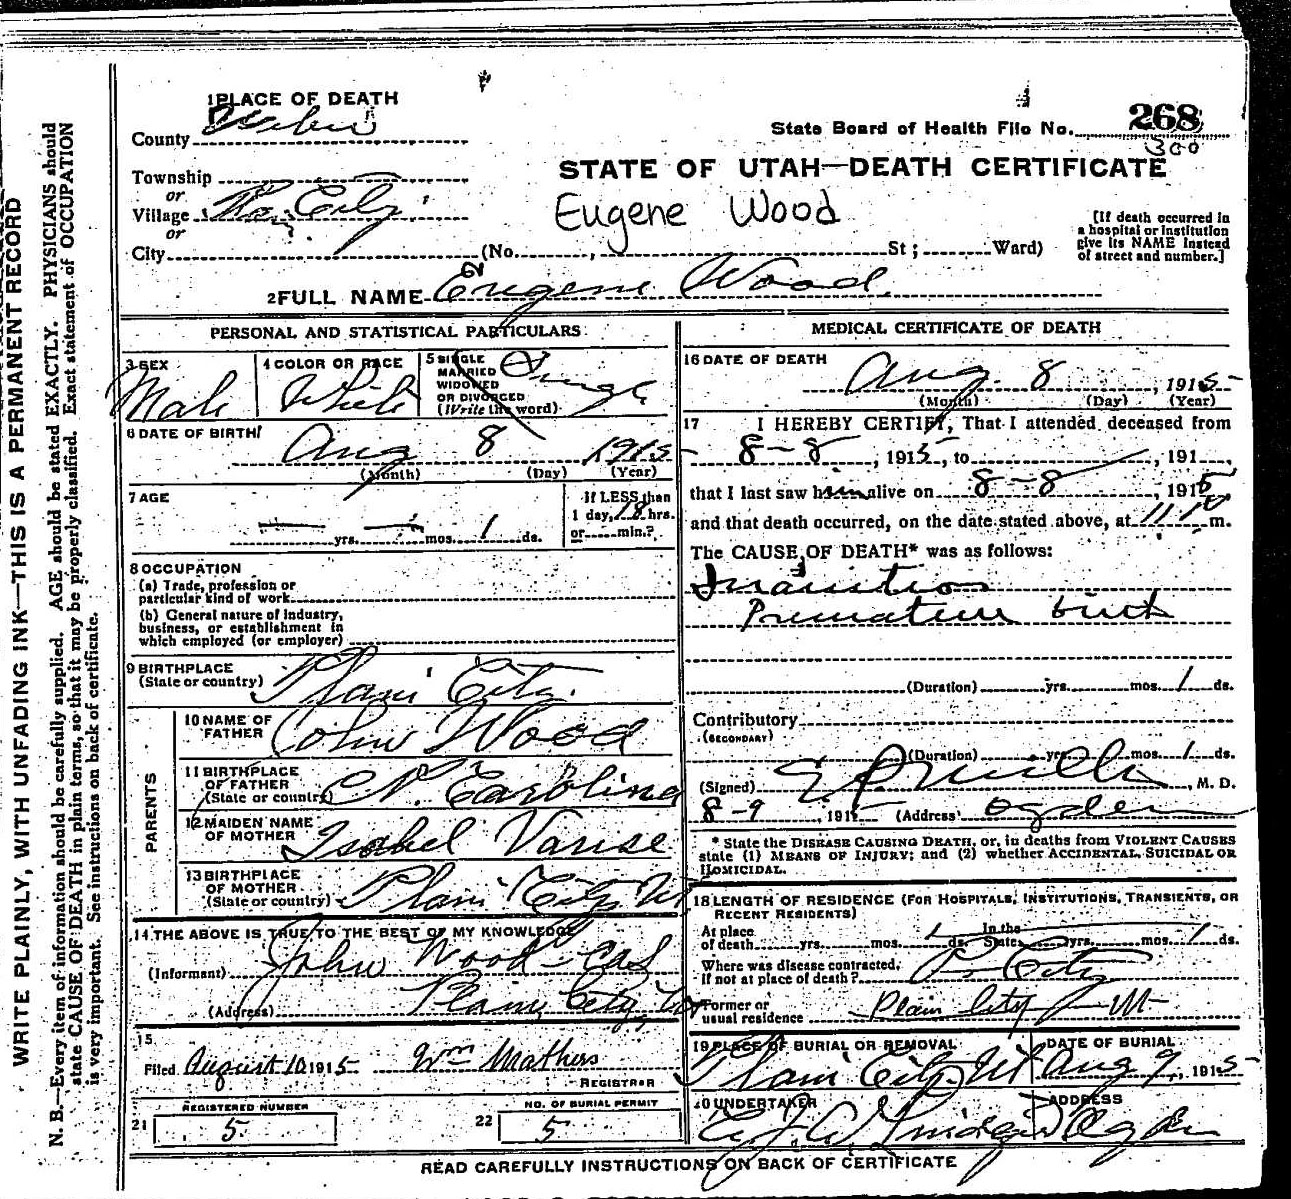 WRITE PLAINLY, WITH UNFADING INK—THIS IS A PERMANENT RECORD
N. B.—Every item of information should be carefully supplied. AGE should be stated EXACTLY. PHYSICIANS should
state CAUSE OF DEATH in plain terms, so that it may be properly classified. Exact statement of OCCUPATION
is very important. See instructions on back of certificate.
1 PLACE OF DEATH
County Weber
State Board of Health File No. 268
300
STATE OF UTAH—DEATH CERTIFICATE
Township
or
Village City
or
City (No. , St ; Ward)
Eugene Wood
[If death occurred in
a hospital or institution
give its NAME instead
of street and number.]
2 FULL NAME Eugene Wood
PERSONAL AND STATISTICAL PARTICULARS
3 SEX
Male
4 COLOR OR RACE
White
5 SINGLE
MARRIED
WIDOWED
OR DIVORCED
(Write the word)
Single
6 DATE OF BIRTH
Aug 8 1915
(Month) (Day) (Year)
7 AGE
yrs. mos. 1 ds.
If LESS than
1 day, 18 hrs.
or min.?
8 OCCUPATION
(a) Trade, profession or
particular kind of work
(b) General nature of industry,
business, or establishment in
which employed (or employer)
9 BIRTHPLACE
(State or country) Plain City
PARENTS
10 NAME OF
FATHER John Wood
11 BIRTHPLACE
OF FATHER
(State or country) N. Carolina
12 MAIDEN NAME
OF MOTHER Isabel
13 BIRTHPLACE
OF MOTHER
(State or country) Plain City Ut
14 THE ABOVE IS TRUE TO THE BEST OF MY KNOWLEDGE
(Informant) John Wood
(Address) Plain City Ut
15
Filed August 10 1915 Wm Mathers
REGISTRAR
REGISTERED NUMBER
21 5
NO. OF BURIAL PERMIT
22 5
MEDICAL CERTIFICATE OF DEATH
16 DATE OF DEATH
Aug. 8 , 1915
(Month) (Day) (Year)
17 I HEREBY CERTIFY, That I attended deceased from
8-8 , 1915, to , 191 ,
that I last saw him alive on 8-8 , 1915
and that death occurred, on the date stated above, at 11 10 m.
The CAUSE OF DEATH* was as follows:
Inanition
Premature birth
(Duration) yrs. mos. 1 ds.
Contributory
(SECONDARY)
(Duration) yrs. mos. 1 ds.
(Signed) , M. D.
8-9 , 191 (Address) Ogden
* State the DISEASE CAUSING DEATH, or, in deaths from VIOLENT CAUSES
state (1) MEANS OF INJURY; and (2) whether ACCIDENTAL, SUICIDAL OR
HOMICIDAL.
18 LENGTH OF RESIDENCE (FOR HOSPITALS, INSTITUTIONS, TRANSIENTS, OR
RECENT RESIDENTS)
At place
of death yrs. mos. 1 ds. In the State yrs. mos. 1 ds.
Where was disease contracted,
if not at place of death? City
Former or
usual residence Plain City Ut
19 PLACE OF BURIAL OR REMOVAL
Plain City Ut
DATE OF BURIAL
Aug 9, 1915
20 UNDERTAKER
ADDRESS
Ogden
READ CAREFULLY INSTRUCTIONS ON BACK OF CERTIFICATE